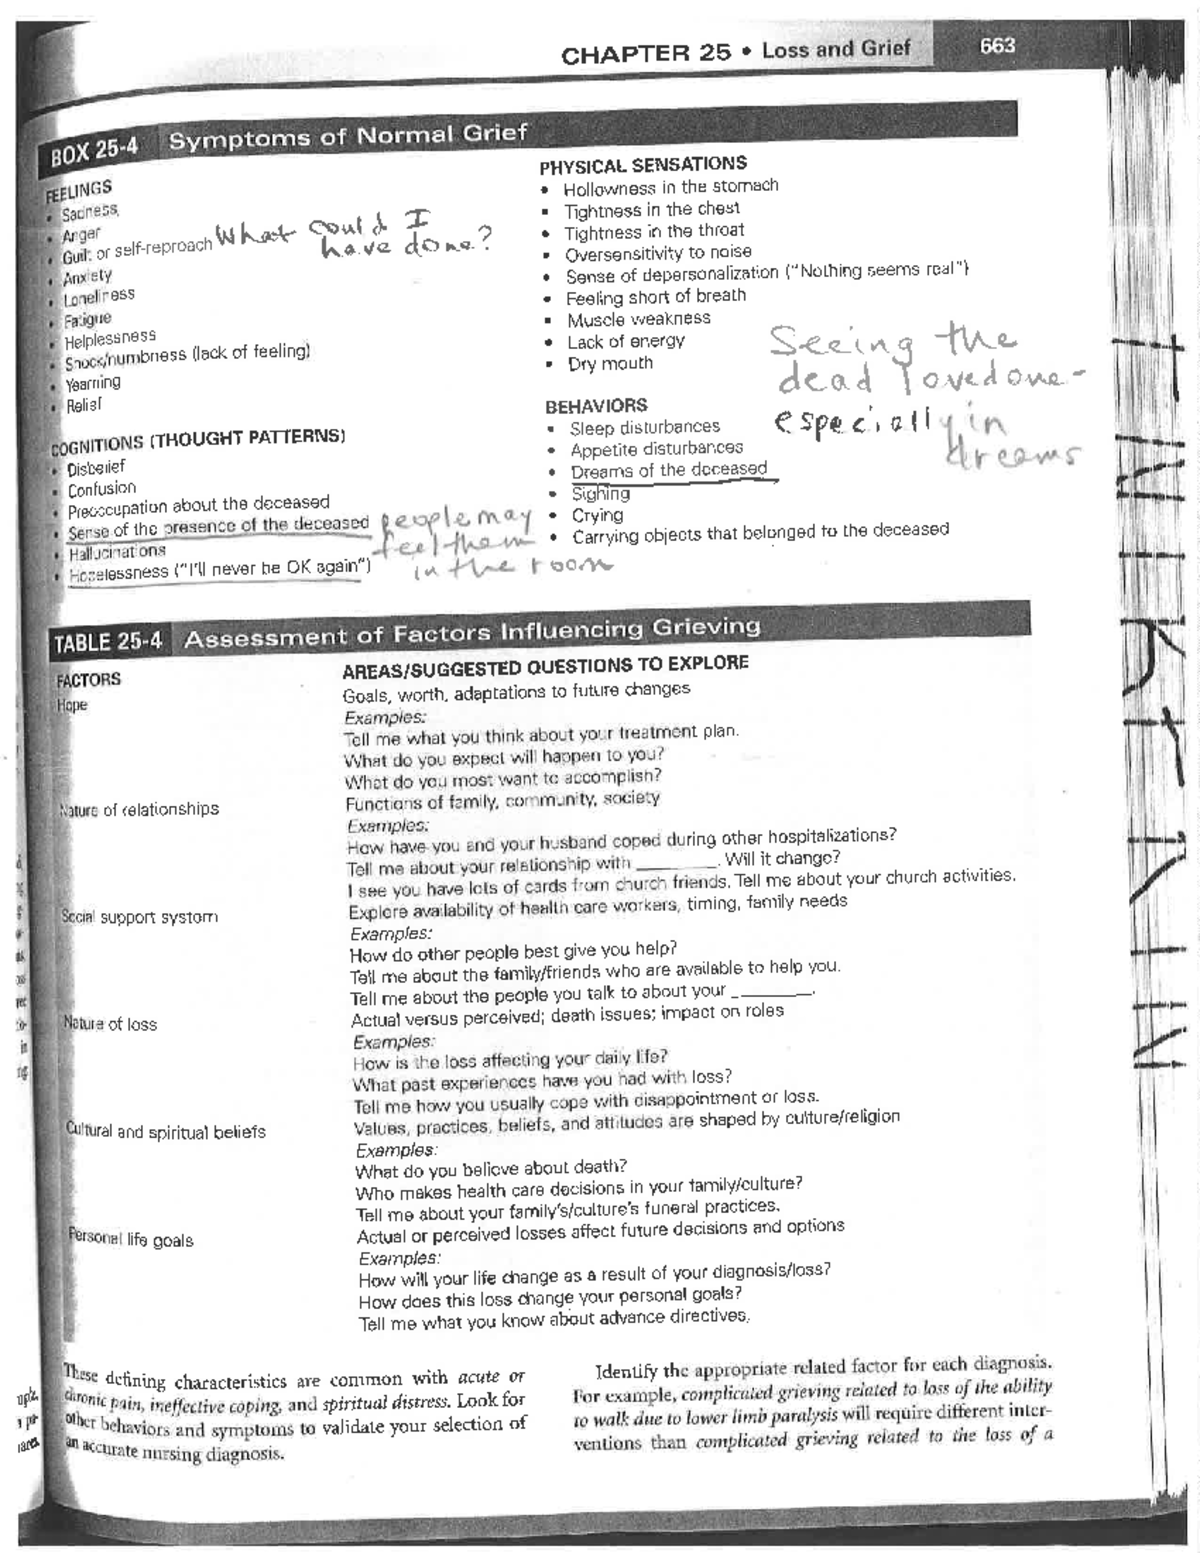 CHAPTER 25 • Loss and Grief 663
BOX 25-4 Symptoms of Normal Grief
FEELINGS
• Sadness
• Anger
• Guilt or self-reproach What could I
have done?
• Anxiety
• Loneliness
• Fatigue
• Helplessness
• Shock/numbness (lack of feeling)
• Yearning
• Relief
COGNITIONS (THOUGHT PATTERNS)
• Disbelief
• Confusion
• Preoccupation about the deceased
• Sense of the presence of the deceased people may
• Hallucinations feel them
• Hopelessness ("I'll never be OK again") in the room
PHYSICAL SENSATIONS
• Hollowness in the stomach
• Tightness in the chest
• Tightness in the throat
• Oversensitivity to noise
• Sense of depersonalization ("Nothing seems real")
• Feeling short of breath
• Muscle weakness
• Lack of energy
• Dry mouth
Seeing the
dead lovedone-
especially in
dreams
BEHAVIORS
• Sleep disturbances
• Appetite disturbances
• Dreams of the deceased
• Sighing
• Crying
• Carrying objects that belonged to the deceased
TABLE 25-4 Assessment of Factors Influencing Grieving
FACTORS AREAS/SUGGESTED QUESTIONS TO EXPLORE
Hope Goals, worth, adaptations to future changes
Examples:
Tell me what you think about your treatment plan.
What do you expect will happen to you?
What do you most want to accomplish?
Nature of relationships Functions of family, community, society
Examples:
How have you and your husband coped during other hospitalizations?
Tell me about your relationship with ________. Will it change?
I see you have lots of cards from church friends. Tell me about your church activities.
Social support system Explore availability of health care workers, timing, family needs
Examples:
How do other people best give you help?
Tell me about the family/friends who are available to help you.
Tell me about the people you talk to about your ________.
Nature of loss Actual versus perceived; death issues; impact on roles
Examples:
How is the loss affecting your daily life?
What past experiences have you had with loss?
Tell me how you usually cope with disappointment or loss.
Cultural and spiritual beliefs Values, practices, beliefs, and attitudes are shaped by culture/religion
Examples:
What do you believe about death?
Who makes health care decisions in your family/culture?
Tell me about your family's/culture's funeral practices.
Personal life goals Actual or perceived losses affect future decisions and options
Examples:
How will your life change as a result of your diagnosis/loss?
How does this loss change your personal goals?
Tell me what you know about advance directives.
These defining characteristics are common with acute or
chronic pain, ineffective coping, and spiritual distress. Look for
other behaviors and symptoms to validate your selection of
an accurate nursing diagnosis.
Identify the appropriate related factor for each diagnosis.
For example, complicated grieving related to loss of the ability
to walk due to lower limb paralysis will require different inter-
ventions than complicated grieving related to the loss of a